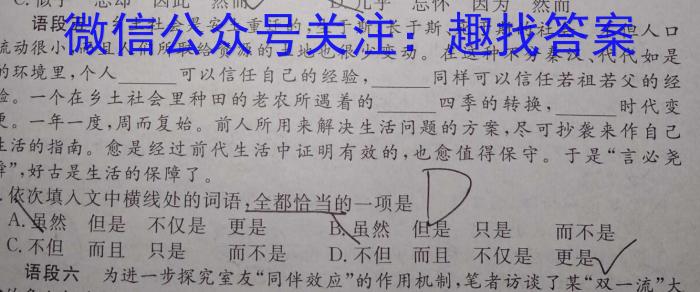 C.似乎 忘却 因此 然而 D.几乎 忘怀 因为 然而
微信公众号关注：趣找答案
语段五 乡土社会是
长于斯
人口
流动很小
地也很少变动。在这种不分秦汉，代代如是
的环境里，个人______可以信任自己的经验，______同样可以信任若祖若父的经
验。一个在乡土社会里种田的老农所遇着的______四季的转换，______时代变
更。一年一度，周而复始。前人所用来解决生活问题的方案，尽可抄袭来作自己
生活的指南。愈是经过前代生活中证明有效的，也愈值得保守。于是“言必尧
舜”，好古是生活的保障了。
依次填入文中横线处的词语，全都恰当的一项是 D
A.虽然 但是 不仅是 更是 B.虽然 但是 只是 而不是
C.不但 而且 只是 而不是 D.不但 而且 不仅是 更是
语段六 为进一步探究室友“同伴效应”的作用机制，笔者访谈了某“双一流”大